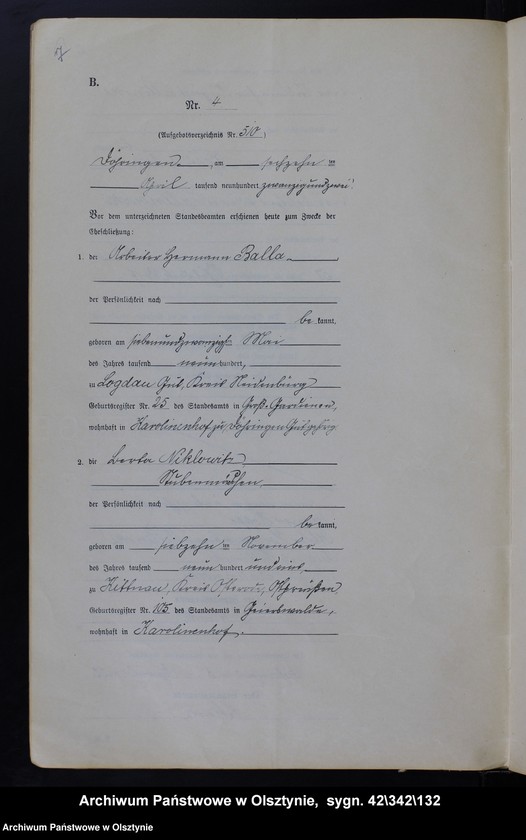 B.
Nr. 4
(Aufgebotsverzeichnis Nr. 5/0)
Döhringen, am sechzehn ten
April tausend neunhundert zwanzigundzwei.
Vor dem unterzeichneten Standesbeamten erschienen heute zum Zwecke der
Eheschließung:
1. der Arbeiter Hermann Balla
der Persönlichkeit nach
be kannt,
geboren am siebenundzwanzigsten Mai
des Jahres tausend neunhundert,
zu Logdau Gut, Kreis Neidenburg
Geburtsregister Nr. 25 des Standesamts in Groß-Gardienen,
wohnhaft in Karolinenhof zu Döhringen
2. die Berta Niklowitz
Stubenmädchen
der Persönlichkeit nach
be kannt,
geboren am siebzehn ten November
des Jahres tausend neun hundert und eins
zu Kittnau, Kreis Osterode, Ostpreußen
Geburtsregister Nr. 105 des Standesamts in Geierswalde,
wohnhaft in Karolinenhof.
Archiwum Państwowe w Olsztynie, sygn. 42\342\132
Archiwum Państwowe w Olsztynie